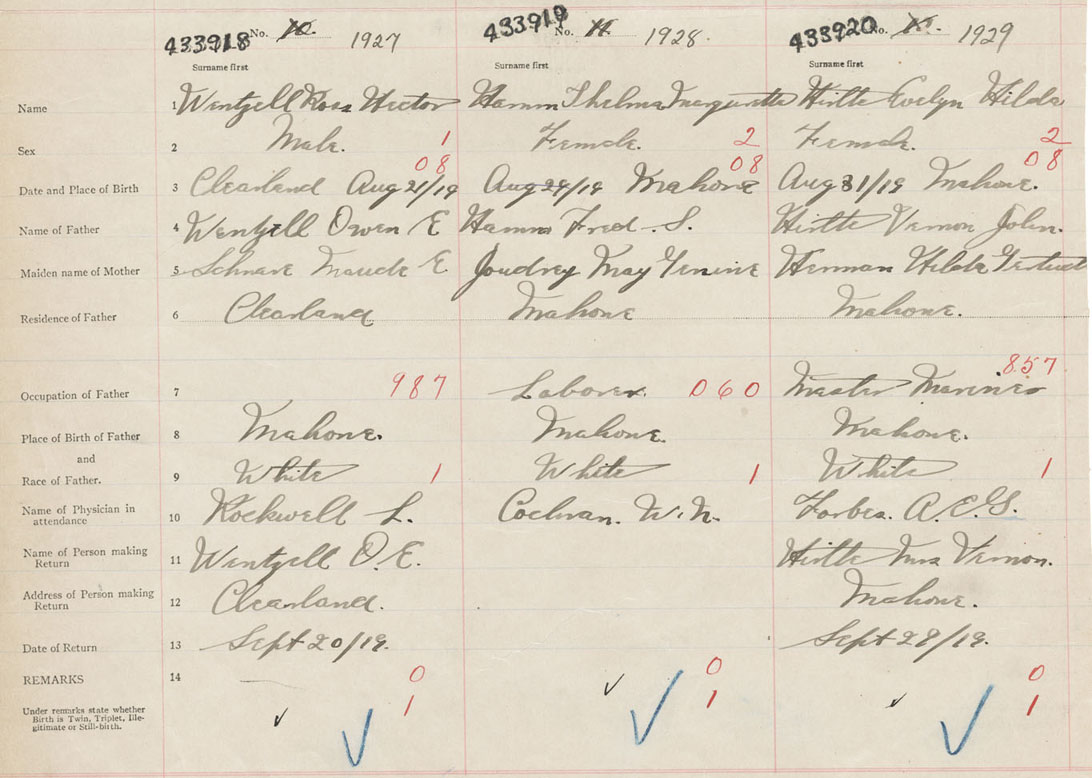 433918 No. 10. 1927 433919 No. 11. 1928. 433920 No. 1929
Surname first Surname first Surname first
Name 1 Wentzell Ross Hector Hamm Thelma Marguerite Hirtle Evelyn Hilda
Sex 2 Male. 1 Female. 2 Female. 2
08 08 08
Date and Place of Birth 3 Clearland Aug 21/19 Aug 29/19 Mahone Aug 31/19 Mahone.
Name of Father 4 Wentzell Owen E Hamm Fred. S. Hirtle Vernon John.
Maiden name of Mother 5 Schnare Maude E Joudrey May Hirtle Herman Hilda Gertrude
Residence of Father 6 Clearland Mahone Mahone.
857
Occupation of Father 7 987 Laborer. 060 Master Mariner
Place of Birth of Father 8 Mahone. Mahone. Mahone.
and
Race of Father. 9 White 1 White 1 White 1
Name of Physician in attendance 10 Rockwell L. Cochran. W. N. Forbes. A. E. G.
Name of Person making Return 11 Wentzell O. E. Hirtle Mrs Vernon.
Address of Person making Return 12 Clearland. Mahone.
Date of Return 13 Sept 20/19. Sept 29/19.
REMARKS 14 0 0 0
Under remarks state whether 1 1 1
Birth is Twin, Triplet, Ille-
gitimate or Still-birth.